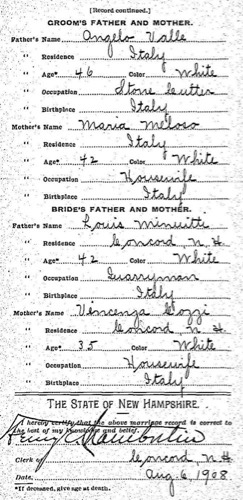 [Record continued.]
GROOM'S FATHER AND MOTHER.
Father's Name Angelo Valle
" Residence Italy
" Age* 46 Color White
" Occupation Stone Cutter
" Birthplace Italy
Mother's Name Maria Meloso
" Residence Italy
" Age* 42 Color White
" Occupation Housewife
" Birthplace Italy
BRIDE'S FATHER AND MOTHER.
Father's Name Louis Minuitti
" Residence Concord N. H.
" Age* 42 Color White
" Occupation Quarryman
" Birthplace Italy
Mother's Name Vincenza Gozzi
" Residence Concord N. H.
" Age* 35 Color White
" Occupation Housewife
" Birthplace Italy
THE STATE OF NEW HAMPSHIRE.
I hereby certify that the above marriage record is correct to
the best of my knowledge and belief.
Henry E Chamberlin
Clerk of Concord N H
Date Aug. 6, 1908
*If deceased, give age at death.